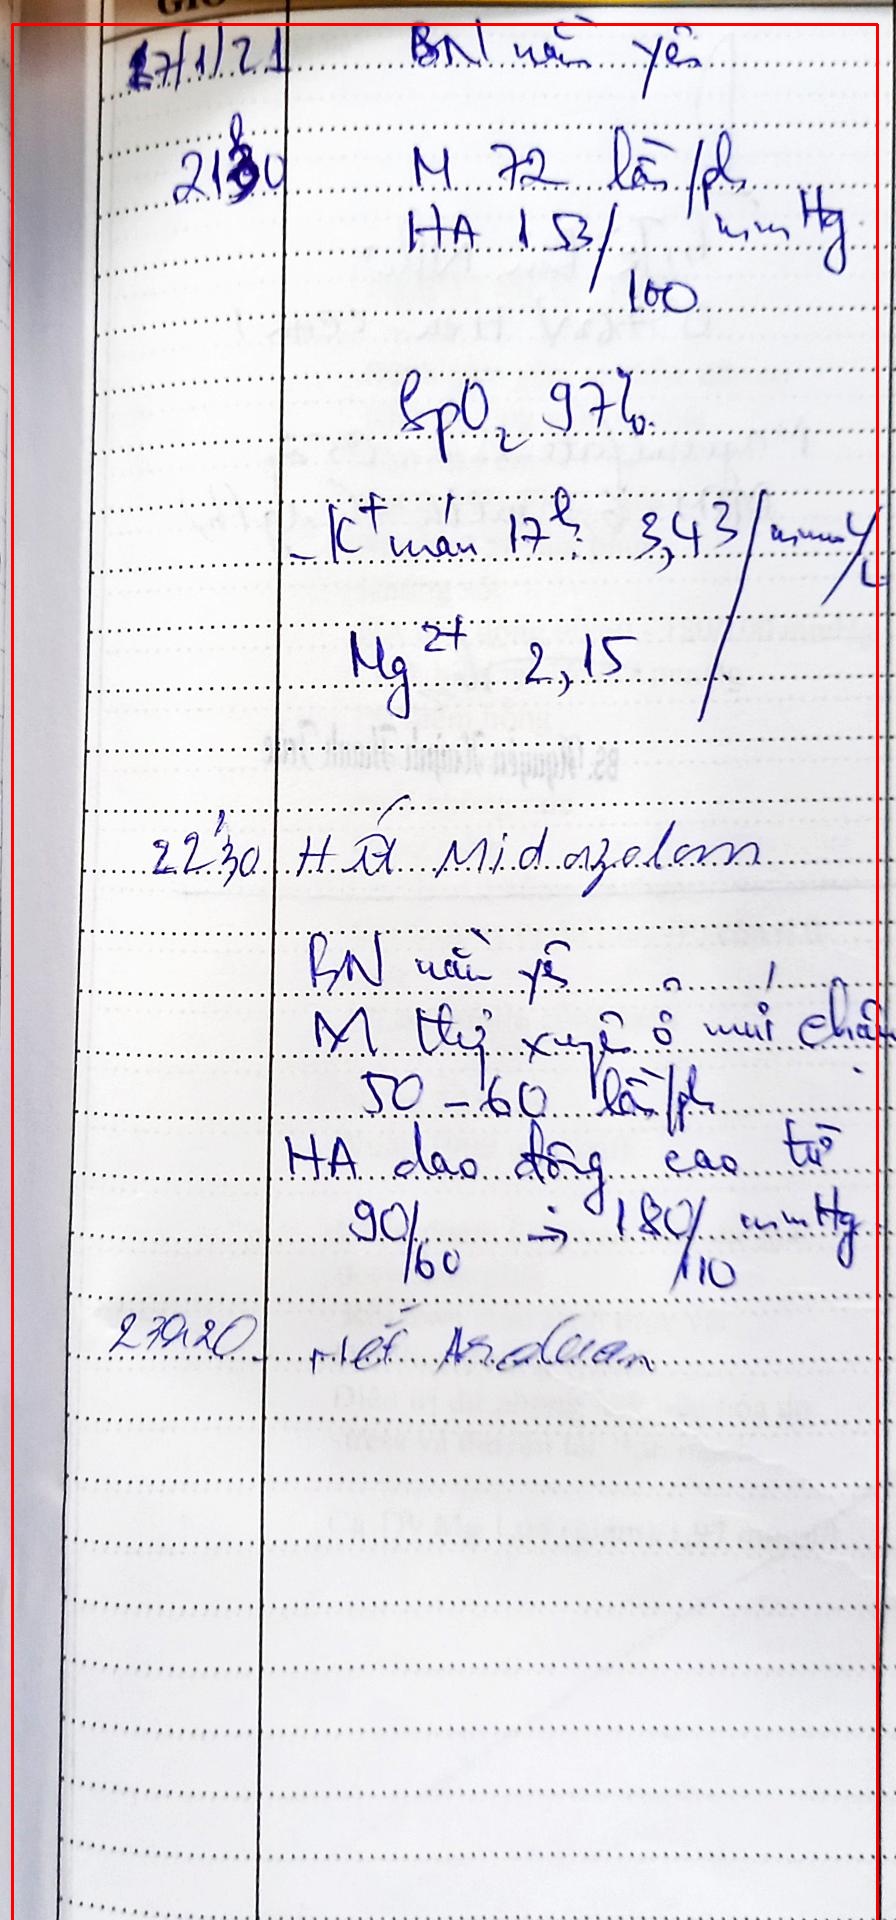 17/1/21 BN nằm yên
21h30 M 72 lần/ph
HA 153/100 mmHg
SpO2 97%
- K+ máu 17h: 3,43 mmol/L
Mg2+ 2,15
22h30 Hết Midazolam
BN nằm yên
M thường xuyên ở mức chậm
50 - 60 lần/ph
HA dao động cao từ
90/60 → 180/110 mmHg
23h20 Hết Arduan